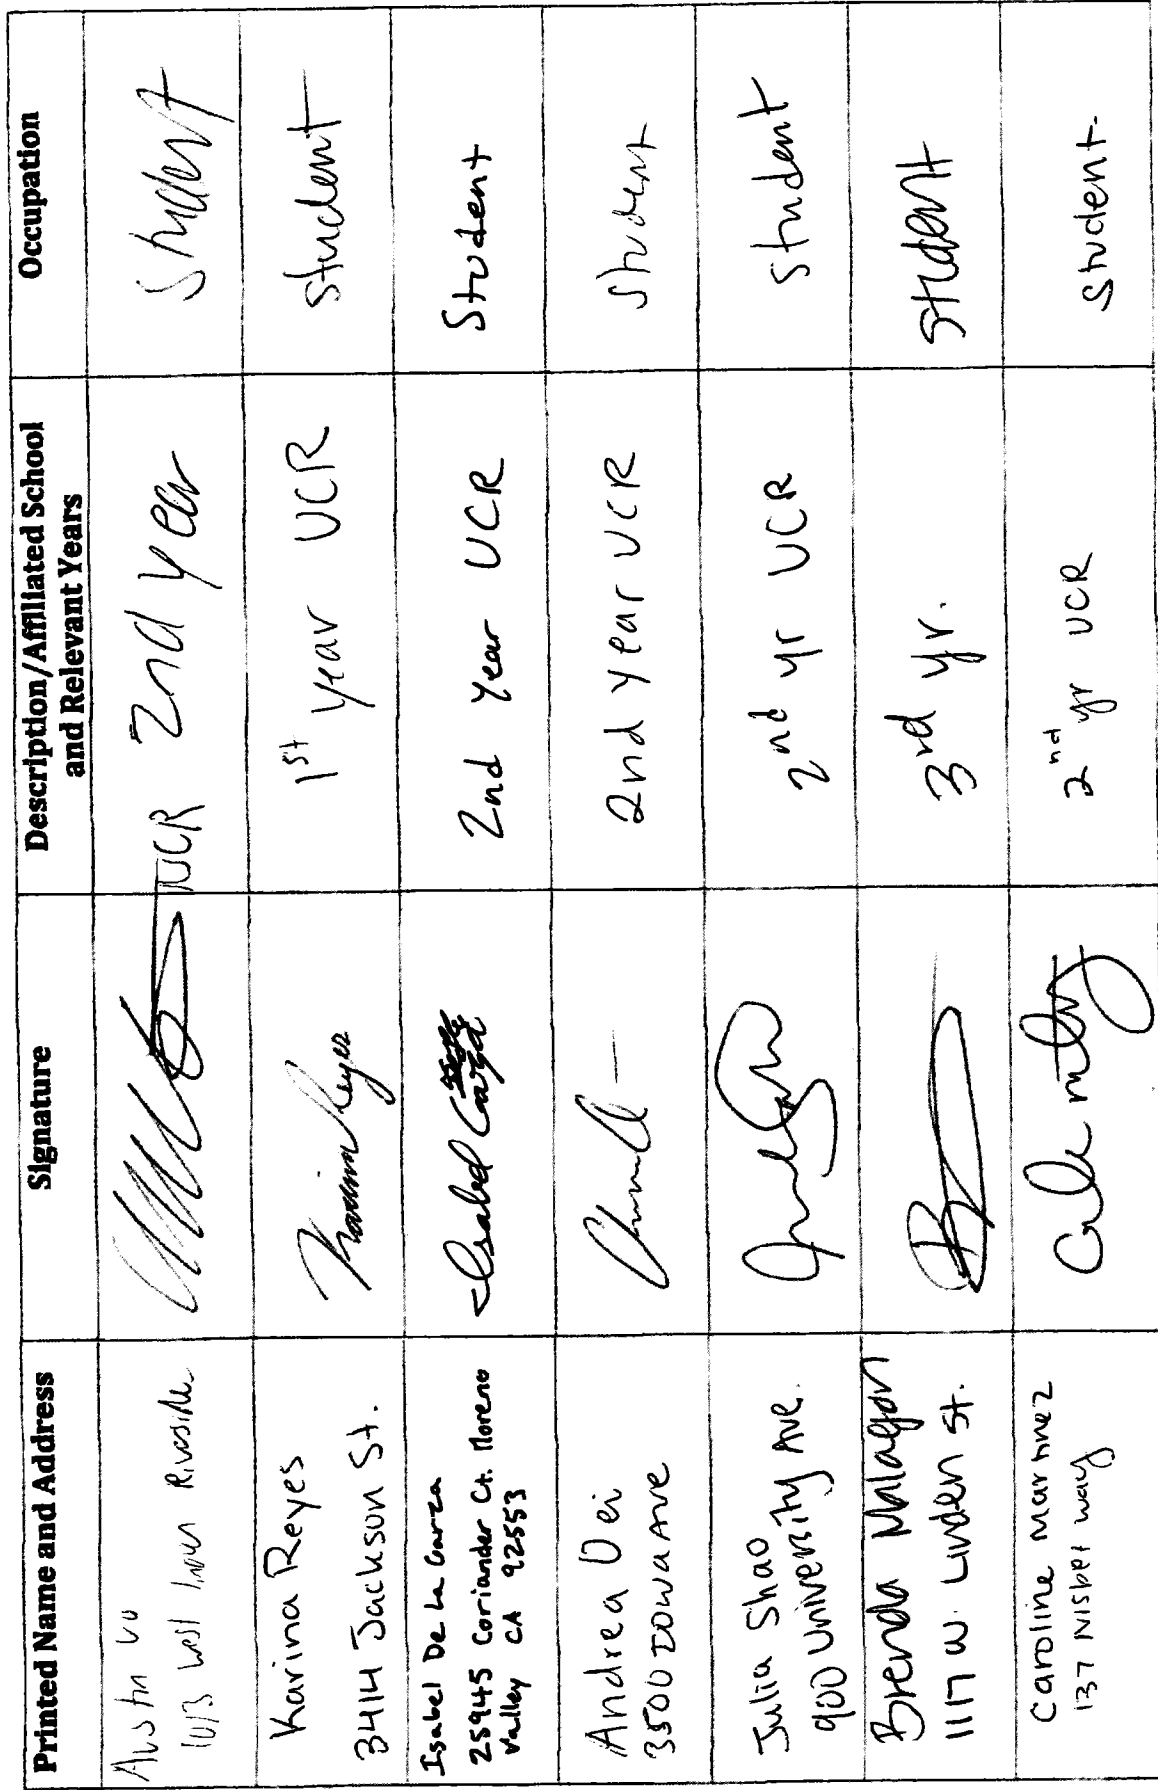 Printed Name and Address
Signature
Description/Affiliated School
and Relevant Years
Occupation
Austin Vu
West Riverside
UCR 2nd year
Student
Karina Reyes
3414 Jackson St.
Karina Reyes
1st year UCR
Student
Isabel De La Garza
25945 Coriander Ct. Moreno
Valley CA 92553
Isabel Garza
2nd Year UCR
Student
Andrea Dei
3500 Iowa Ave
2nd year UCR
Student
Julia Shao
900 University Ave.
2nd yr UCR
Student
Brenda Malagon
1117 W. Linden St.
3rd yr.
Student
Caroline Martinez
137 Nisbet way
2nd yr UCR
Student.